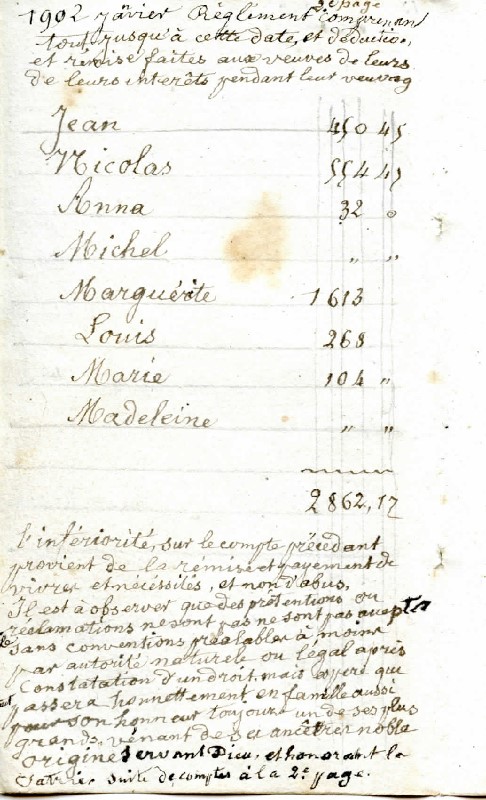 3e page
1902 Janvier Réglement comprenan
tout jusqu'à cette date, et déduction,
et remise faites aux veuves de leurs
de leurs interêts pendant leur veuvag
Jean 450 45
Nicolas 554 47
Anna 32 0
Michel " "
Marguérite 1613
Louis 268
Marie 104 "
Madeleine " "
2862,17
l'infériorité, sur le compte précedant
provient de la remise et payement de
vivres et nécéssités, et non d'abus,
Il est à observer que des prétentions ou
réclamations ne sont pas ne sont pas accepta
sans conventions préalables à moins
par autorité naturele ou légal après
Constatation d'un droit, mais espéré qui
passera honnettement en famille aussi
pour son honneur toujours un de ses plus
grands, venant de ses ancêtres noble
origine servant Dieu, et honorant la
Patrie, suite de comptes à la 2e page.